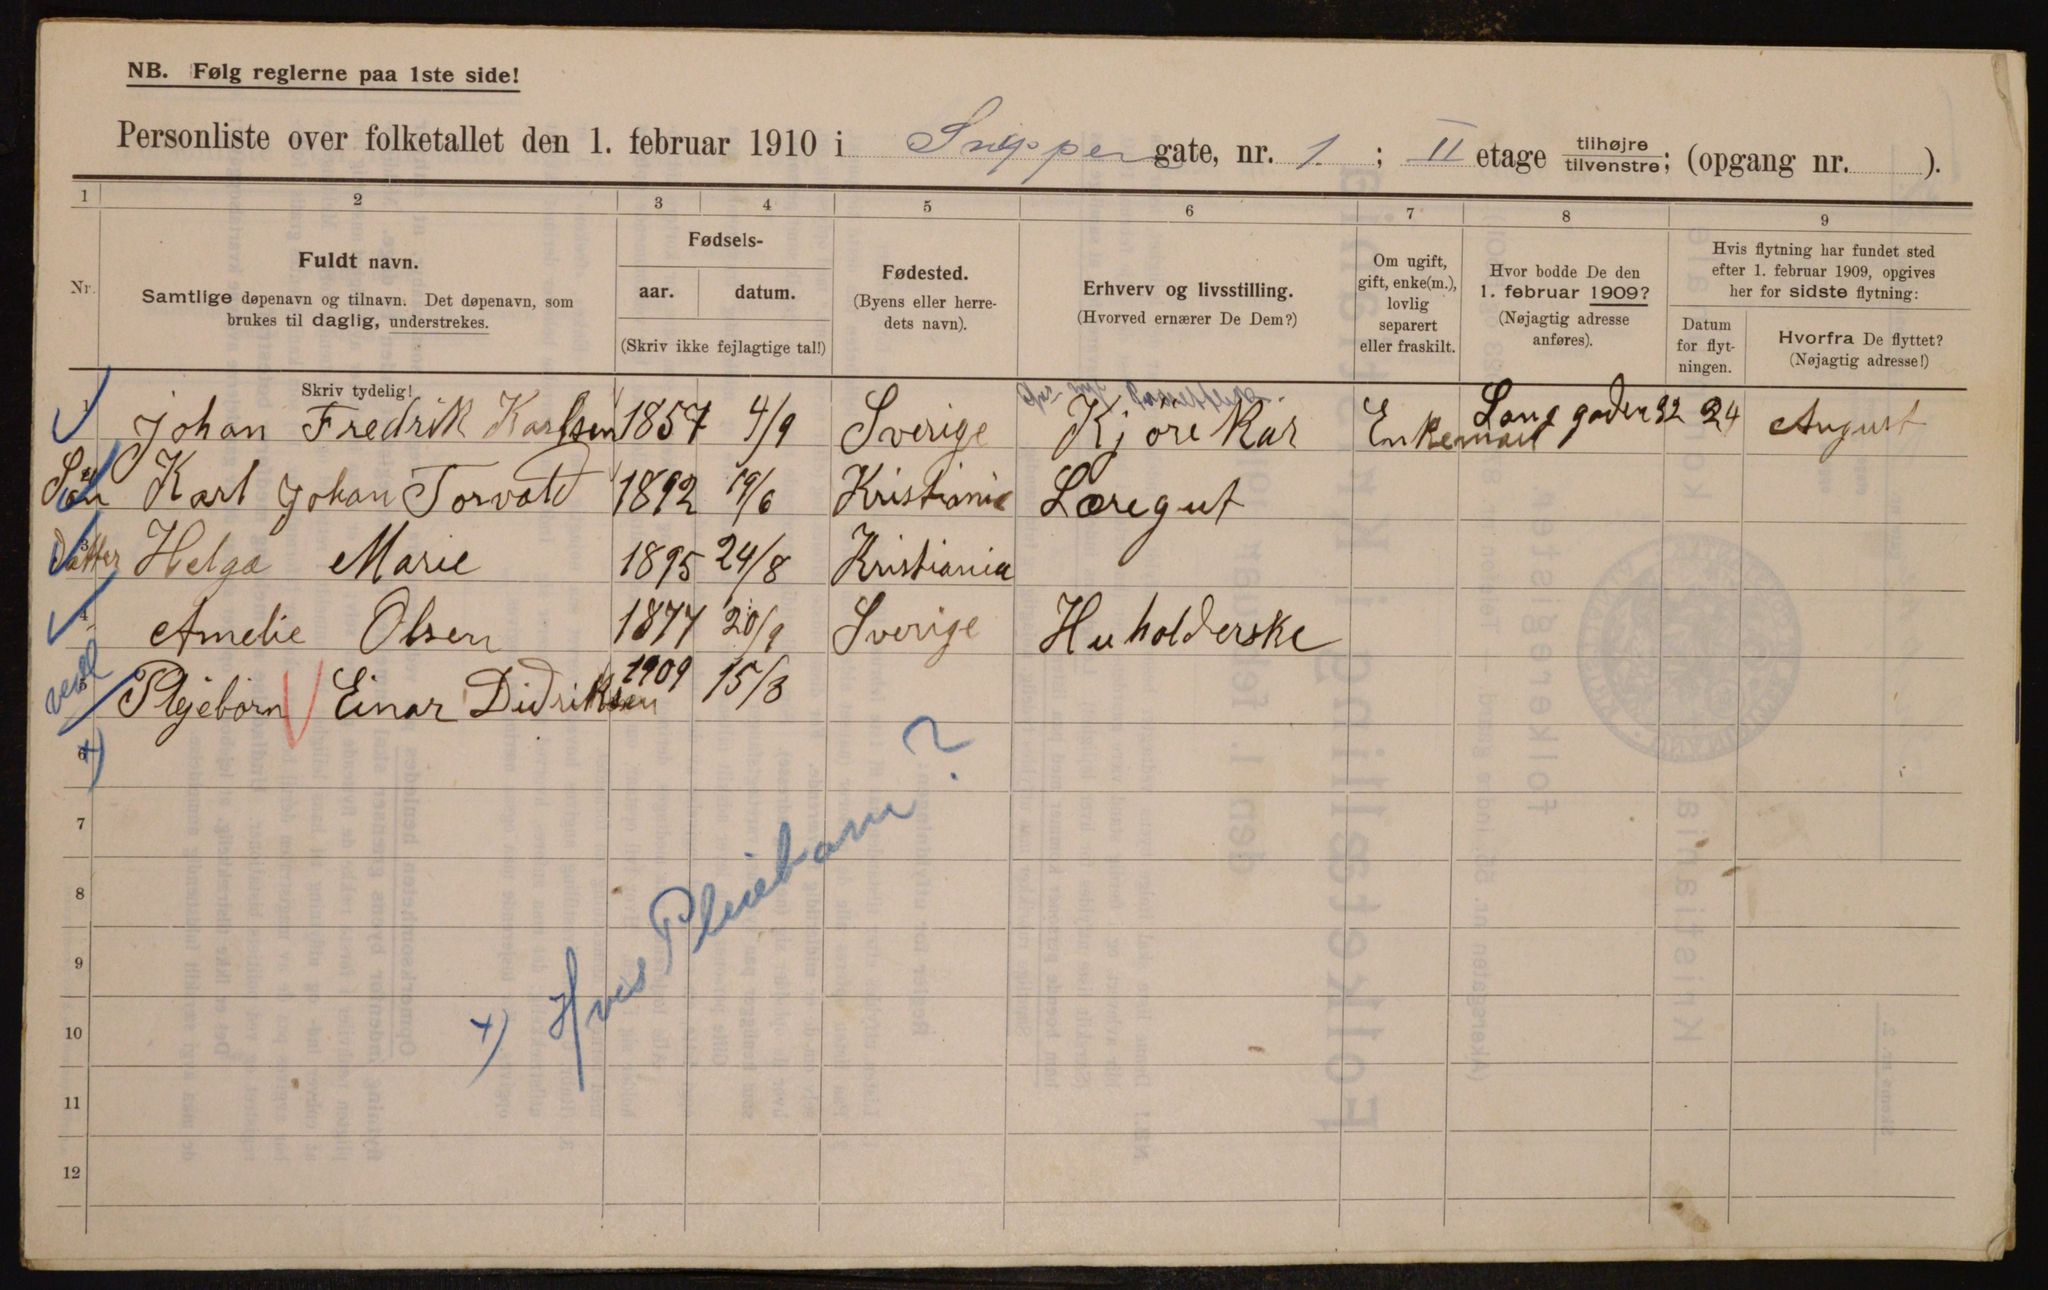 NB. Følg reglerne paa 1ste side!
Personliste over folketallet den 1. februar 1910 i Snipper gate, nr. 1. ; II etage tilhøjre tilvenstre; (opgang nr. ).
1 2 3 4 5 6 7 8 9
Nr.
Fuldt navn.
Samtlige døpenavn og tilnavn. Det døpenavn, som
brukes til daglig, understrekes.
Skriv tydelig!
Fødsels-
aar. datum.
(Skriv ikke fejlagtige tal!)
Fødested.
(Byens eller herre-
dets navn).
Erhverv og livsstilling.
(Hvorved ernærer De Dem?)
Om ugift,
gift, enke(m.),
lovlig
separert
eller fraskilt.
Hvor bodde De den
1. februar 1909?
(Nøjagtig adresse
anføres).
Hvis flytning har fundet sted
efter 1. februar 1909, opgives
her for sidste flytning:
Datum
for flyt-
ningen.
Hvorfra De flyttet?
(Nøjagtig adresse!)
1 Johan Fredrik Karlsen 1857 4/9 Sverige Kjörekar Enkemand Langgaden 32 24 August
Søn Karl Johan Torvald 1892 19/6 Kristiania Læregut
Datter 3 Helga Marie 1895 24/8 Kristiania
4 Amelie Olsen 1877 20/9 Sverige Huholderske
5 Plejebørn Einar Didriksen 1909 15/3
6 +)
7
8
9
10
11
12
+) Hvis Pleiebarn?